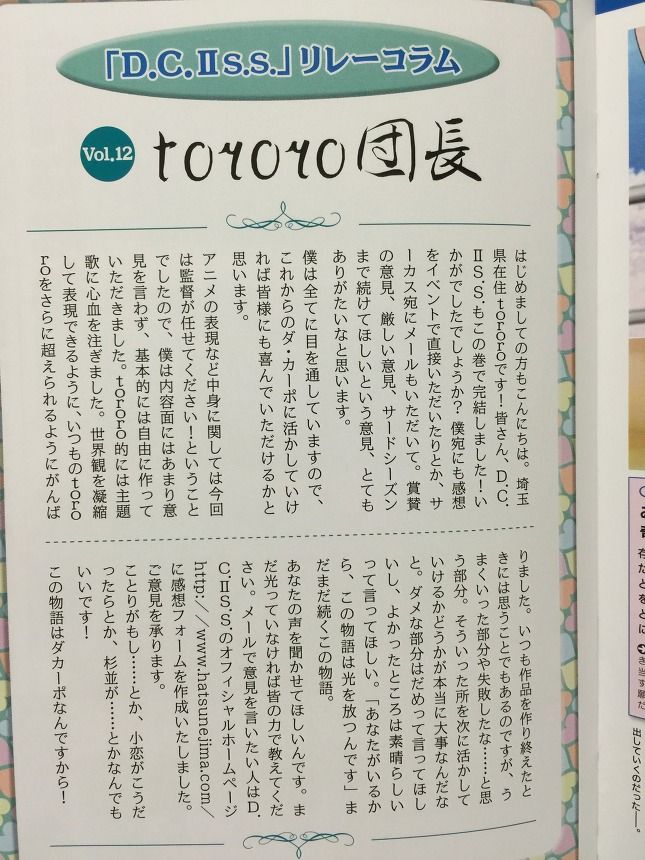 「D.C.Ⅱ S.S.」リレーコラム
Vol.12
tororo団長
はじめましての方もこんにちは。埼玉
県在住tororoです！皆さん、D.C.
ⅡS.S.もこの巻で完結しました！い
かがでしたでしょうか？僕宛にも感想
をイベントで直接いただいたりとか、サ
ーカス宛にメールもいただいて。賞賛
の意見、厳しい意見、サードシーズン
まで続けてほしいという意見、とても
ありがたいなと思います。
僕は全てに目を通していますので、
これからのダ・カーポに活かしていけ
れば皆様にも喜んでいただけるかと
思います。
アニメの表現など中身に関しては今回
は監督が任せてください！ということ
でしたので、僕は内容面にはあまり意
見を言わず、基本的には自由に作って
いただきました。tororo的には主題
歌に心血を注ぎました。世界観を凝縮
して表現できるように、いつものtoro
roをさらに超えられるようにがんば
りました。いつも作品を作り終えたと
きには思うことでもあるのですが、う
まくいった部分や失敗したな……と思
う部分。そういった所を次に活かして
いけるかどうかが本当に大事なんだな
と。ダメな部分はだめって言ってほし
いし、よかったところは素晴らしい
って言ってほしい。「あなたがいるか
ら、この物語は光を放つんです」ま
だまだ続くこの物語。
あなたの声を聞かせてほしいんです。ま
だ光っていなければ皆の力で教えてくだ
さい。メールで意見を言いたい人はD.
C.ⅡS.S.のオフィシャルホームページ
http://www.hatsunejima.com/
に感想フォームを作成いたしました。
ご意見を承ります。
ことりがもし……とか、小恋がこうだ
ったらとか、杉並が……とかなんでも
いいです！
この物語はダカーポなんですから！
出していくのだった――。